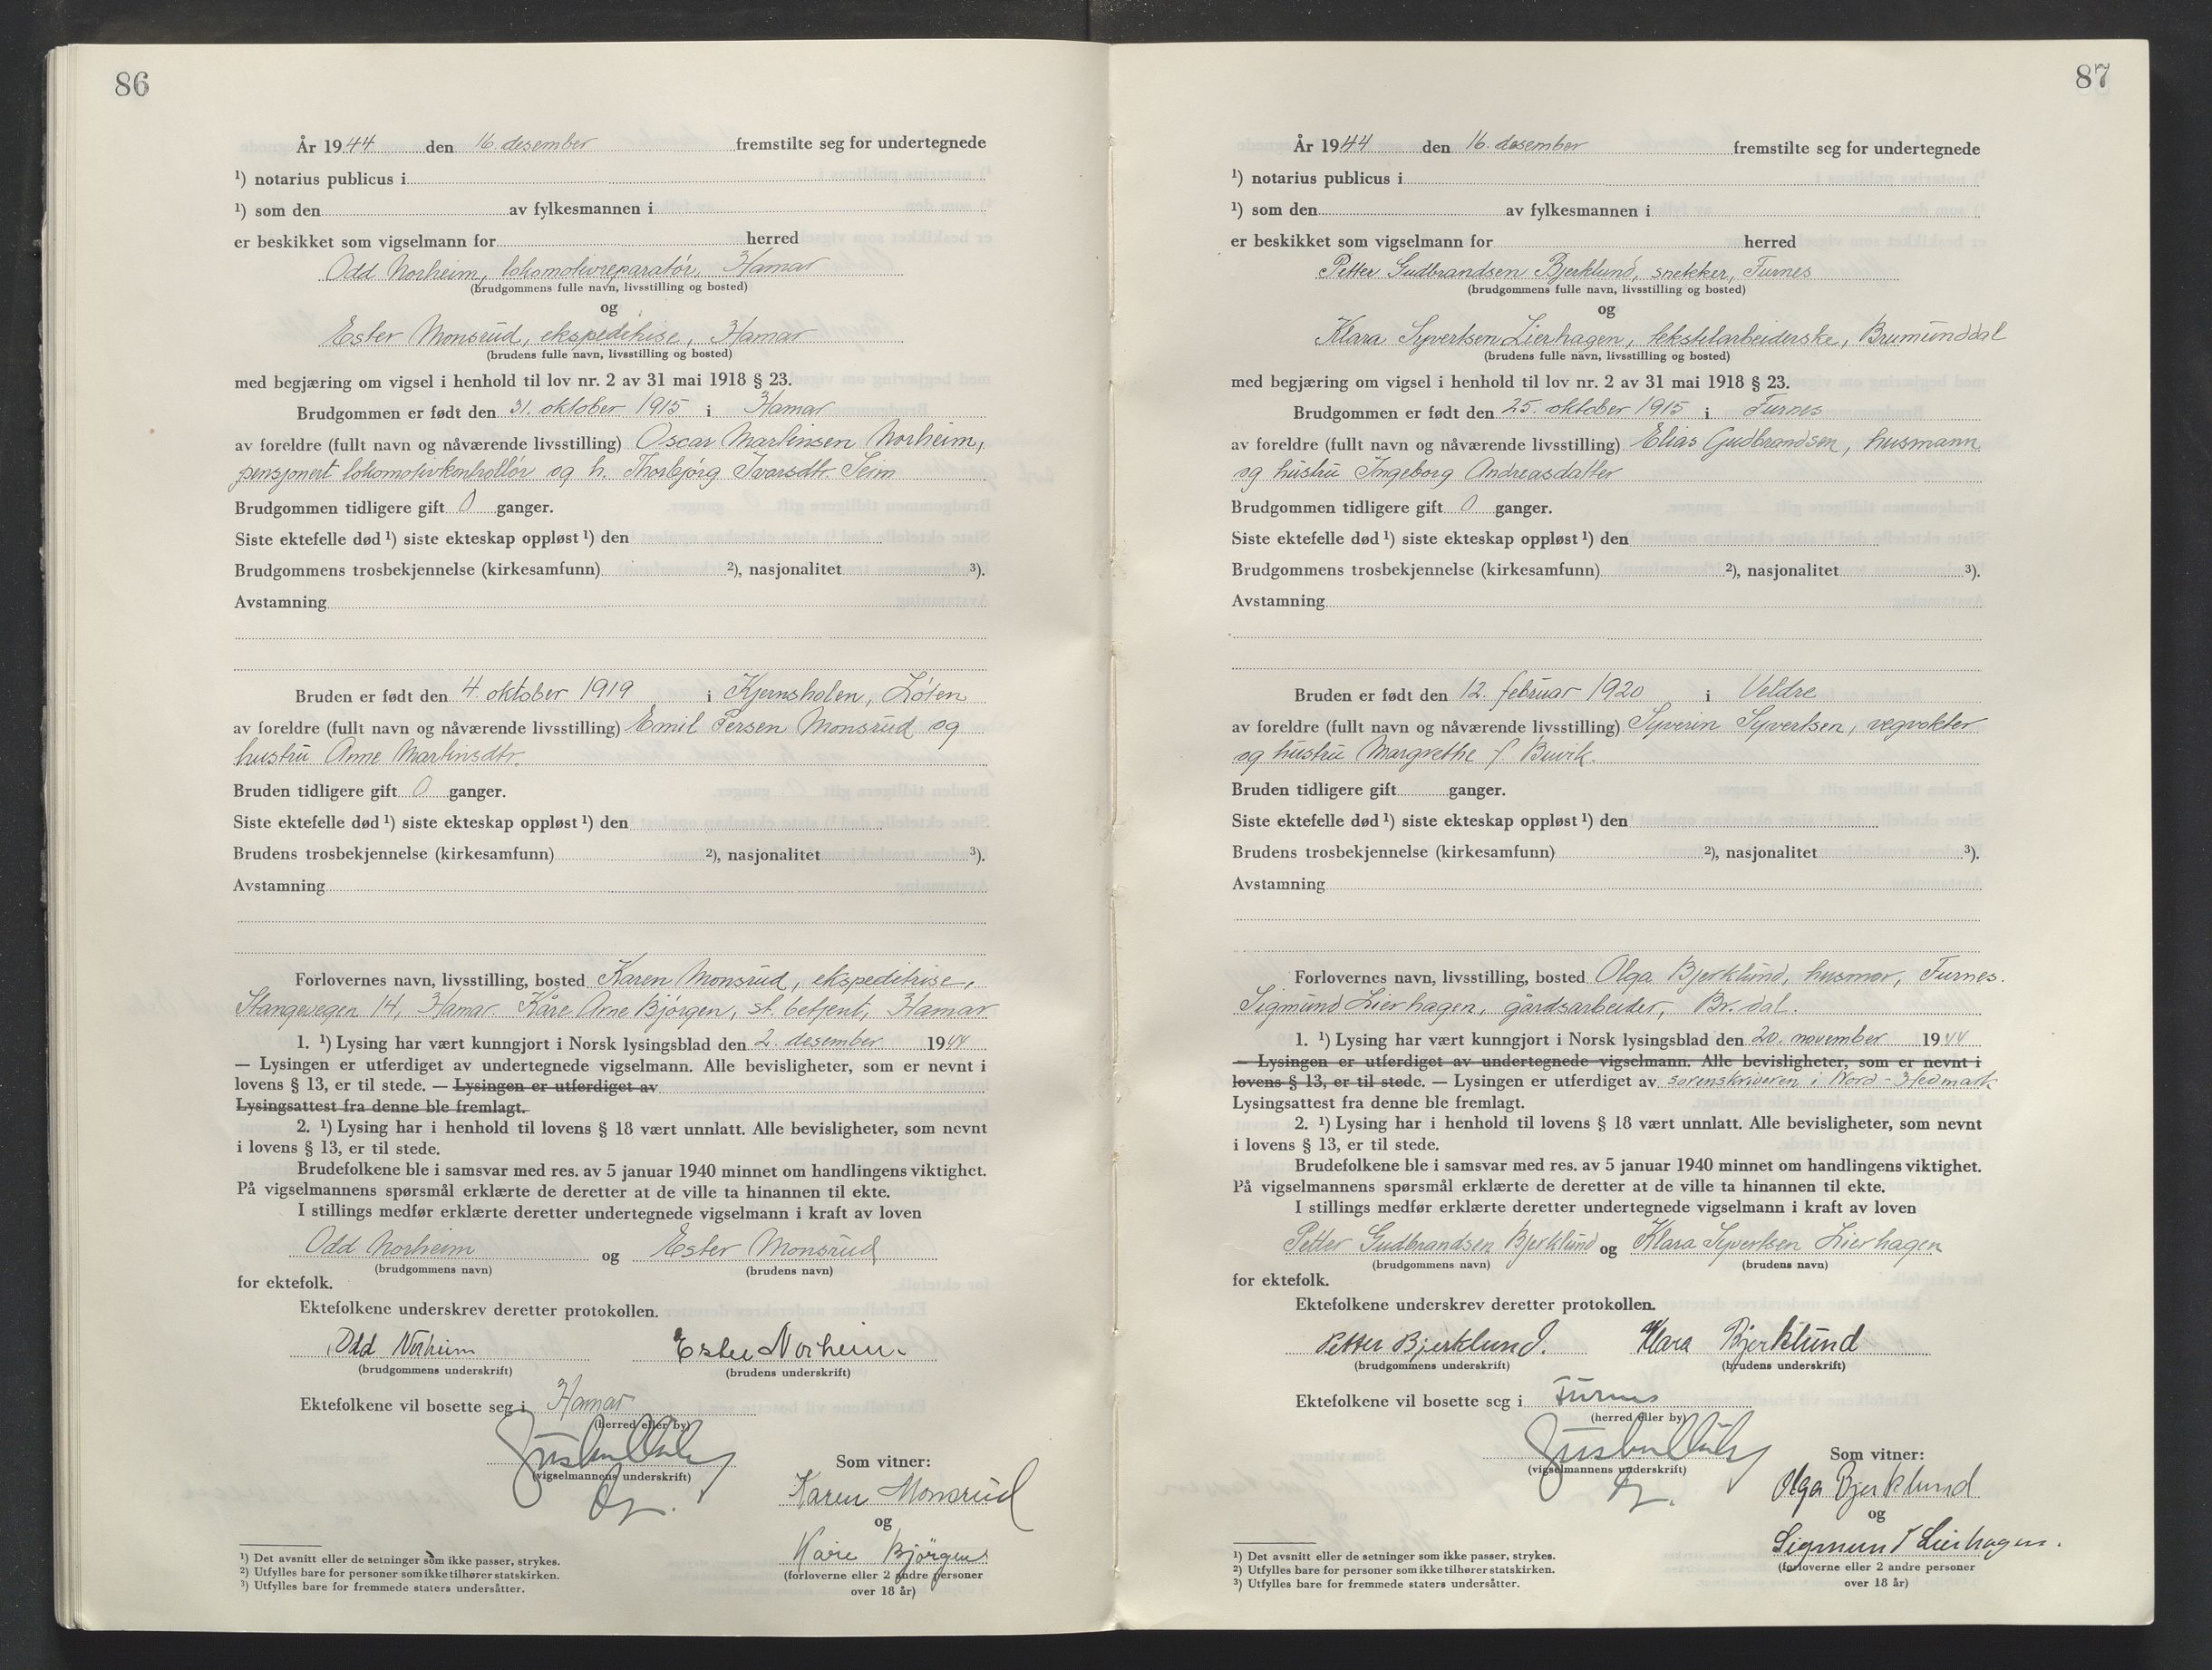 86
År 1944 den 16. desember fremstilte seg for undertegnede
¹) notarius publicus i
¹) som den av fylkesmannen i
er beskikket som vigselmann for herred
Odd Norheim, lokomotivreparatør, Hamar
(brudgommens fulle navn, livsstilling og bosted)
og
Ester Monsrud, ekspeditrise, Hamar
(brudens fulle navn, livsstilling og bosted)
med begjæring om vigsel i henhold til lov nr. 2 av 31 mai 1918 § 23.
Brudgommen er født den 31. oktober 1915 i Hamar
av foreldre (fullt navn og nåværende livsstilling) Oscar Martinsen Norheim,
pensjonert lokomotivkontrollør og h. Thorbjørg Ivarsdtr. Seim
Brudgommen tidligere gift 0 ganger.
Siste ektefelle død ¹) siste ekteskap oppløst ¹) den
Brudgommens trosbekjennelse (kirkesamfunn) ²), nasjonalitet ³).
Avstamning
Bruden er født den 4. oktober 1919 i Kjernsholen, Løten
av foreldre (fullt navn og nåværende livsstilling) Emil Persen Monsrud og
hustru Anne Martinsdtr.
Bruden tidligere gift 0 ganger.
Siste ektefelle død ¹) siste ekteskap oppløst ¹) den
Brudens trosbekjennelse (kirkesamfunn) ²), nasjonalitet ³).
Avstamning
Forlovernes navn, livsstilling, bosted Karen Monsrud, ekspeditrise,
Stangevegen 14, Hamar. Kåre Arne Bjørgen, st. betjent, Hamar
1. ¹) Lysing har vært kunngjort i Norsk lysingsblad den 2. desember 1944
— Lysingen er utferdiget av undertegnede vigselmann. Alle bevisligheter, som er nevnt i
lovens § 13, er til stede. — Lysingen er utferdiget av
Lysingsattest fra denne ble fremlagt.
2. ¹) Lysing har i henhold til lovens § 18 vært unnlatt. Alle bevisligheter, som nevnt
i lovens § 13, er til stede.
Brudefolkene ble i samsvar med res. av 5 januar 1940 minnet om handlingens viktighet.
På vigselmannens spørsmål erklærte de deretter at de ville ta hinannen til ekte.
I stillings medfør erklærte deretter undertegnede vigselmann i kraft av loven
Odd Norheim og Ester Monsrud
(brudgommens navn) (brudens navn)
for ektefolk.
Ektefolkene underskrev deretter protokollen.
Odd Norheim Ester Norheim.
(brudgommens underskrift) (brudens underskrift)
Ektefolkene vil bosette seg i Hamar
(herred eller by)
(vigselmannens underskrift)
Som vitner:
Karen Monsrud
og
Kåre Bjørgen
(forloverne eller 2 andre personer
over 18 år)
¹) Det avsnitt eller de setninger som ikke passer, strykes.
²) Utfylles bare for personer som ikke tilhører statskirken.
³) Utfylles bare for fremmede staters undersåtter.
87
År 1944 den 16. desember fremstilte seg for undertegnede
¹) notarius publicus i
¹) som den av fylkesmannen i
er beskikket som vigselmann for herred
Petter Gudbrandsen Bjerklund, snekker, Furnes
(brudgommens fulle navn, livsstilling og bosted)
og
Klara Syvertsen Lierhagen, tekstilarbeiderske, Brumunddal
(brudens fulle navn, livsstilling og bosted)
med begjæring om vigsel i henhold til lov nr. 2 av 31 mai 1918 § 23.
Brudgommen er født den 25. oktober 1915 i Furnes
av foreldre (fullt navn og nåværende livsstilling) Elias Gudbrandsen, husmann
og hustru Ingeborg Andreasdatter
Brudgommen tidligere gift 0 ganger.
Siste ektefelle død ¹) siste ekteskap oppløst ¹) den
Brudgommens trosbekjennelse (kirkesamfunn) ²), nasjonalitet ³).
Avstamning
Bruden er født den 12. februar 1920 i Veldre
av foreldre (fullt navn og nåværende livsstilling) Syverin Syvertsen, vegvokter
og hustru Margrethe f. Buvik.
Bruden tidligere gift ganger.
Siste ektefelle død ¹) siste ekteskap oppløst ¹) den
Brudens trosbekjennelse (kirkesamfunn) ²), nasjonalitet ³).
Avstamning
Forlovernes navn, livsstilling, bosted Olga Bjerklund, husmor, Furnes.
Sigmund Lierhagen, gårdsarbeider, Br.dal.
1. ¹) Lysing har vært kunngjort i Norsk lysingsblad den 20. november 1944
— Lysingen er utferdiget av undertegnede vigselmann. Alle bevisligheter, som er nevnt i
lovens § 13, er til stede. — Lysingen er utferdiget av sorenskriveren i Nord-Hedmark
Lysingsattest fra denne ble fremlagt.
2. ¹) Lysing har i henhold til lovens § 18 vært unnlatt. Alle bevisligheter, som nevnt
i lovens § 13, er til stede.
Brudefolkene ble i samsvar med res. av 5 januar 1940 minnet om handlingens viktighet.
På vigselmannens spørsmål erklærte de deretter at de ville ta hinannen til ekte.
I stillings medfør erklærte deretter undertegnede vigselmann i kraft av loven
Petter Gudbrandsen Bjerklund og Klara Syvertsen Lierhagen
(brudgommens navn) (brudens navn)
for ektefolk.
Ektefolkene underskrev deretter protokollen.
Petter Bjerklund. Klara Bjerklund
(brudgommens underskrift) (brudens underskrift)
Ektefolkene vil bosette seg i Furnes
(herred eller by)
(vigselmannens underskrift)
Som vitner:
Olga Bjerklund
og
Sigmund Lierhagen.
(forloverne eller 2 andre personer
over 18 år)
¹) Det avsnitt eller de setninger som ikke passer, strykes.
²) Utfylles bare for personer som ikke tilhører statskirken.
³) Utfylles bare for fremmede staters undersåtter.